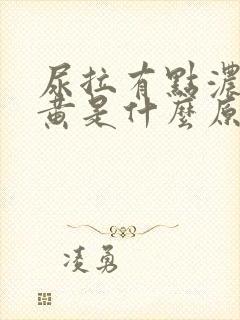 尿拉有點濃
黃是什麼原
凌勇